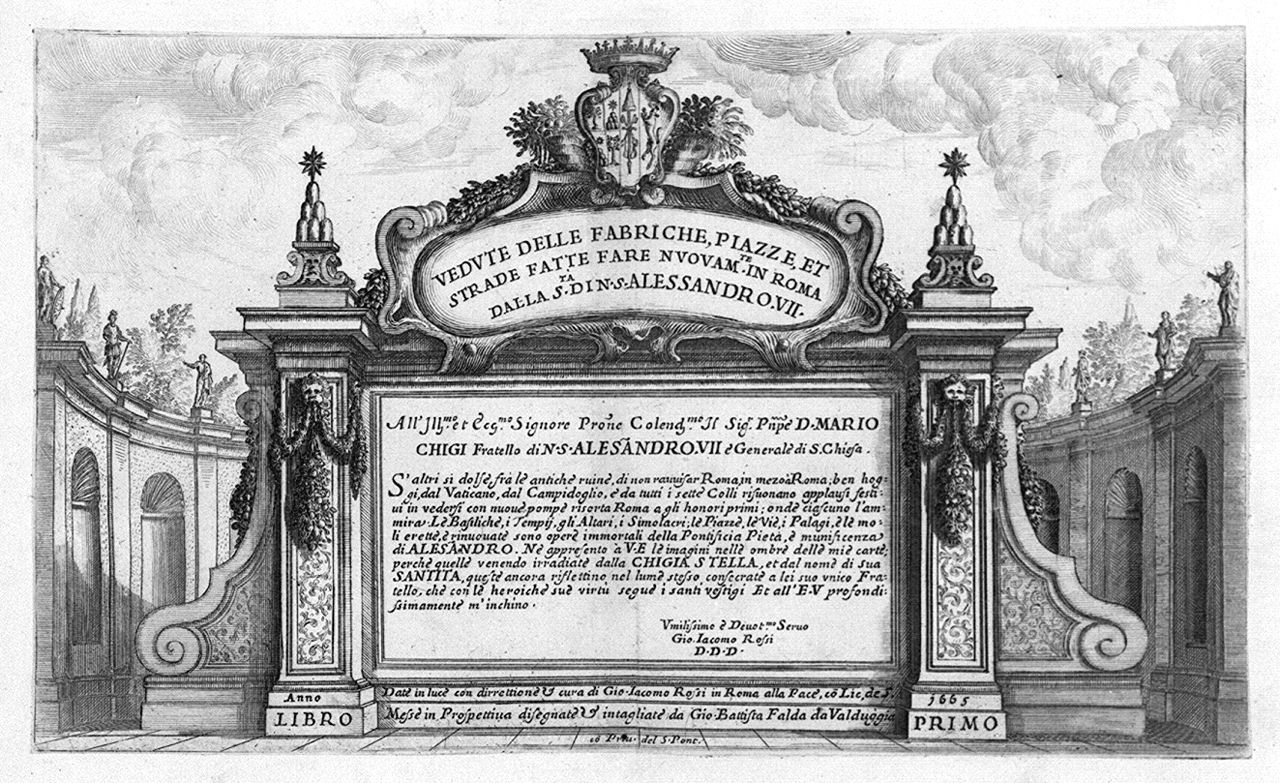 VEDVTE DELLE FABRICHE, PIAZZE, ET
STRADE FATTE FARE NVOVAM.TE IN ROMA
DALLA S.TA DI N·S·ALESSANDRO·VII·
All' Ill.mo et Ecc.mo Signore Prone Colend.mo Il Sig.r Pnpe D·MARIO
CHIGI Fratello di N·S·ALESANDRO·VII è Generale di S. Chiesa.
S'altri si dolse, frà lè antiche ruine, di non rauuisar Roma, in mezo à Roma; ben hog-
gi, dal Vaticano, dal Campidoglio, è da tutti i sette Colli risuonano applausi festi-
ui in vedersi con nuouè pompè risorta Roma a gli honori primi; ondè ciascuno l'am-
mira. Lè Basilichè, i Tempij, gli Altari, i Simolacri, lè Piazzè, lè Viè, i Palagi, è lè mo-
li erettè, è rinuouatè sono operè immortali della Pontificia Pietà, è munificenza
di ALESANDRO. Nè appresento à V·E lè imagini nellè ombrè dellè miè cartè;
perchè quellè venendo irradiatè dalla CHIGIA STELLA, et dal nomè di sua
SANTITÀ, questè ancora riflettino nel lumè stesso, consecratè a lei suo vnico Fra-
tello, chè con lè heroichè suè virtù seguè i santi vestigi Et all' E·V profondi-
ssimamentè m'inchino.
Vmilissimo è Deuot.mo Seruo
Gio. Iacomo Rossi
D·D·D·
Datè in lucè con dirrettionè & cura di Gio. Iacomo Rossi in Roma alla Pacè, cō Lic. de S.
Messè in Prospettiua disegnatè & intagliatè da Gio. Battista Falda da Valduggia
cō Priu. del S. Pont.
Anno
LIBRO
1665
PRIMO